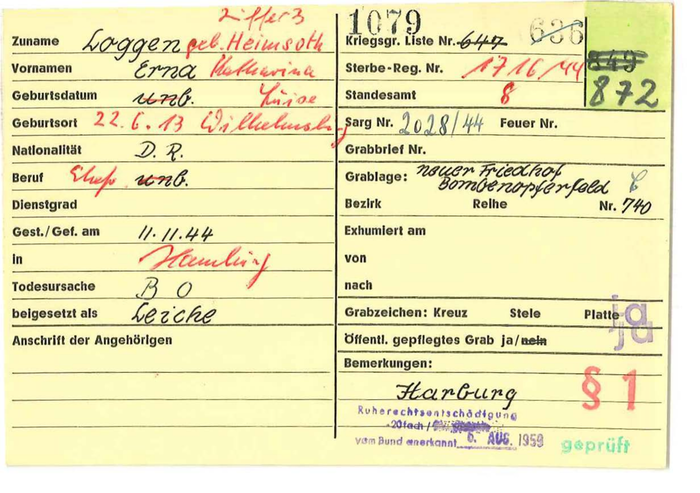 Ziffer 3
Zuname Loggen geb. Heimsoth
Vornamen Erna Katharina
Geburtsdatum unb. Luise
Geburtsort 22.6.13 Wilhelmsbg
Nationalität D. R.
Beruf Ehefr. unb.
Dienstgrad
Gest./Gef. am 11.11.44
in Hamburg
Todesursache B O
beigesetzt als Leiche
Anschrift der Angehörigen
1079
Kriegsgr. Liste Nr. 647 636
849
872
Sterbe-Reg. Nr. 1716/44
Standesamt 8
Sarg Nr. 2028/44 Feuer Nr.
Grabbrief Nr.
Grablage: neuer Friedhof
Bombenopferfeld
Bezirk Reihe Nr. 740
Exhumiert am
von
nach
Grabzeichen: Kreuz Stele Platte ja
Öffentl. gepflegtes Grab ja/nein ja
Bemerkungen:
Harburg
§ 1
Ruherechtsentschädigung
-20fach/
vom Bund anerkannt 6. AUG. 1959
geprüft